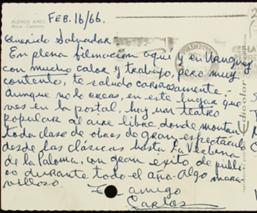 BUENOS AIRES
FEB. 16/66.
Querido Salvador:
En plena filmación aquí y en Uruguay
con mucho calor y trabajo, pero muy
contentos, te saludo cariñosamente;
aunque no lo creas, en este lugar que
ves en la postal, hay un teatro
popular al aire libre donde montan
toda clase de obras de gran espectáculo
desde las clásicas hasta La Verbena
de la Paloma, con gran éxito de públi-
co durante todo el año. Algo mara-
villoso.
Tu amigo
Carlos